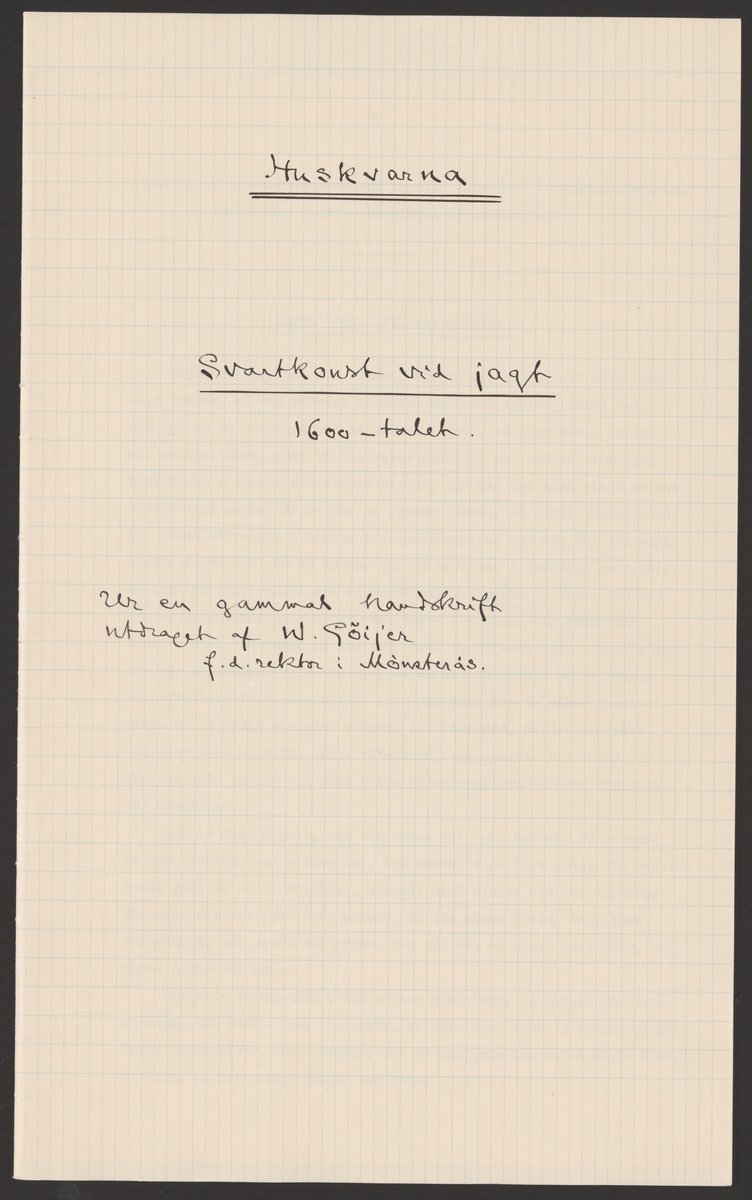 Huskvarna
Svartkonst vid jagt
1600-talet.
Ur en gammal handskrift
utdraget af W. Göijer
f.d. rektor i Mönsterås.